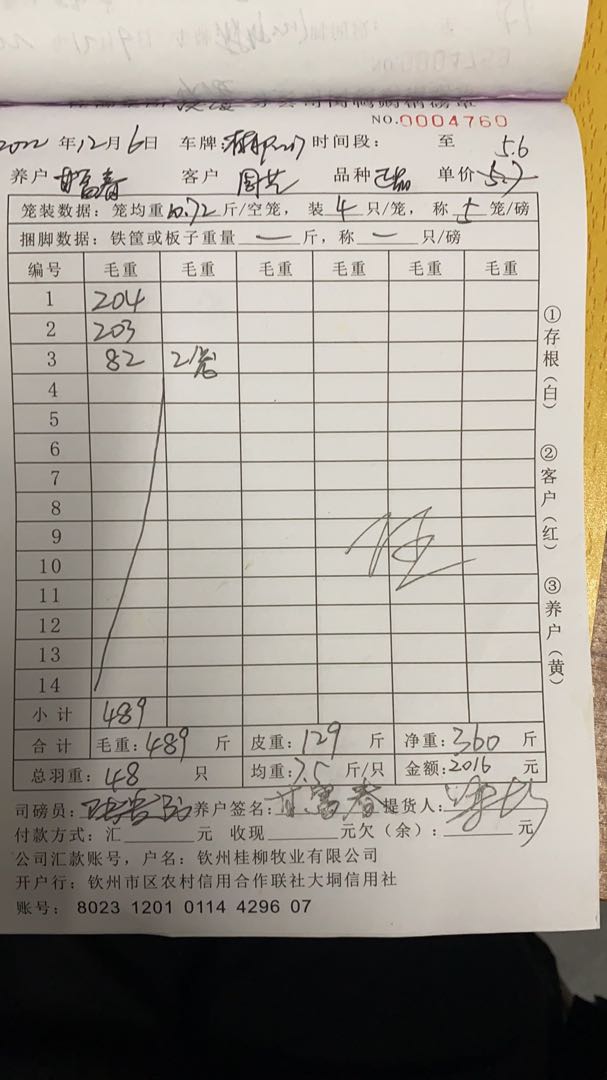 NO.0004760
2022年12月6日 车牌: 时间段: 至
5.6
养户 甘富春 客户 周艺 品种 正品 单价 5.7
笼装数据：笼均重10.72斤/空笼，装4只/笼，称5笼/磅
捆脚数据：铁筐或板子重量—斤，称—只/磅
编号 毛重 毛重 毛重 毛重 毛重 毛重
1 204
2 203
3 82 2笼
4
5
6
7
8
9
10
11
12
13
14
小计 489
合计 毛重：489斤 皮重：129斤 净重：360斤
总羽重：48只 均重：7.5斤/只 金额：2016元
司磅员： 养户签名：甘富春 提货人：
付款方式：汇______元 收现______元欠（余）：______元
公司汇款账号，户名：钦州桂柳牧业有限公司
开户行：钦州市区农村信用合作联社大垌信用社
账号： 8023 1201 0114 4296 07
①存根（白）
②客户（红）
③养户（黄）